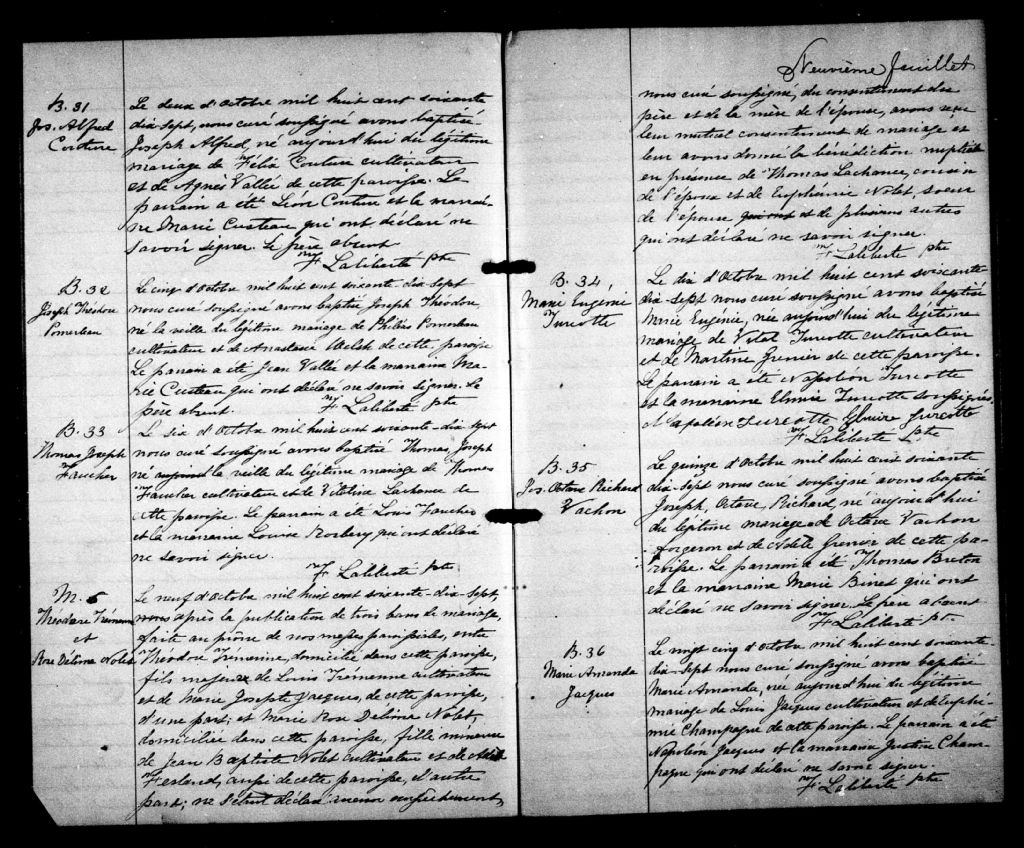 B. 31
Jos. Alfred
Couture
Le deux d'Octobre mil huit cent soixante
dix sept, nous curé soussigné avons baptisé
Joseph Alfred, né aujourd'hui du légitime
mariage de Félix Couture cultivateur
et de Agnès Vallée de cette paroisse. Le
parrain a été Léon Couture et la marrai-
ne Marie Custeau qui ont déclaré ne
savoir signer. Le père absent
F. Laliberté ptre
B. 32
Joseph Théodore
Pomerleau
Le cinq d'Octobre mil huit cent soixante dix-sept
nous curé soussigné avons baptisé Joseph Théodore
né la veille du légitime mariage de Philias Pomerleau
cultivateur et de Anastasie Welsh de cette paroisse
Le parrain a été Jean Vallée et la marraine Ma-
rie Custeau qui ont déclaré ne savoir signer. Le
père absent.
F. Laliberté ptre
B. 33
Thomas Joseph
Faucher
Le six d'Octobre mil huit cent soixante-dix sept
nous curé soussigné avons baptisé Thomas, Joseph
né la veille du légitime mariage de Thomas
Faucher cultivateur et de Vitaline Lachance de
cette paroisse. Le parrain a été Louis Faucher
et la marraine Louise qui ont déclaré
ne savoir signer.
F. Laliberté ptre
M. 5
Théodore
et
Rose Délima Nolet
Le neuf d'Octobre mil huit cent soixante-dix-sept,
après la publication de trois bans de mariage,
faite au prône de nos messes paroissiales, entre
Théodore domicilié dans cette paroisse,
fils majeur de Louis cultivateur
et de Marie Josephte Jacques, de cette paroisse,
d'une part; et Marie Rose Délima Nolet,
domiciliée dans cette paroisse, fille mineure
de Jean Baptiste Nolet cultivateur et de
Ferland, aussi de cette paroisse, d'autre
part; ne s'étant déclaré aucun empêchement,
Neuvième feuillet
nous curé soussigné, du consentement du
père et de la mère de l'épouse, avons reçu
leur mutuel consentement de mariage et
leur avons donné la bénédiction nuptiale
en présence de Thomas Lachance, cousin
de l'époux et de Euphémie Nolet, soeur
de l'épouse qui ont et de plusieurs autres
qui ont déclaré ne savoir signer.
F. Laliberté ptre
B. 34,
Marie Eugénie
Turcotte
Le dix d'Octobre mil huit cent soixante
dix-sept nous curé soussigné avons baptisé
Marie Eugénie, née aujourd'hui du légitime
mariage de Vital Turcotte cultivateur
et de Martine Grenier de cette paroisse.
Le parrain a été Napoléon Turcotte
et la marraine Elmire Turcotte soussignés.
Napoléon Turcotte Elmire Turcotte
F. Laliberté Ptre
B. 35
Jos. Octave Richard
Vachon
Le quinze d'Octobre mil huit cent soixante
dix-sept nous curé soussigné avons baptisé
Joseph, Octave, Richard, né aujourd'hui
du légitime mariage de Octave Vachon
forgeron et de Adèle Grenier de cette pa-
roisse. Le parrain a été Thomas Breton
et la marraine Marie Binet qui ont
déclaré ne savoir signer. Le père absent
F. Laliberté pt.
B. 36
Marie Amanda
Jacques
Le vingt cinq d'Octobre mil huit cent soixante
dix-sept nous curé soussigné avons baptisé
Marie Amanda, née aujourd'hui du légitime
mariage de Louis Jacques cultivateur et de Euphé-
mie Champagne de cette paroisse. Le parrain a été
Napoléon Jacques et la marraine Justine Cham-
pagne qui ont déclaré ne savoir signer.
F. Laliberté ptre